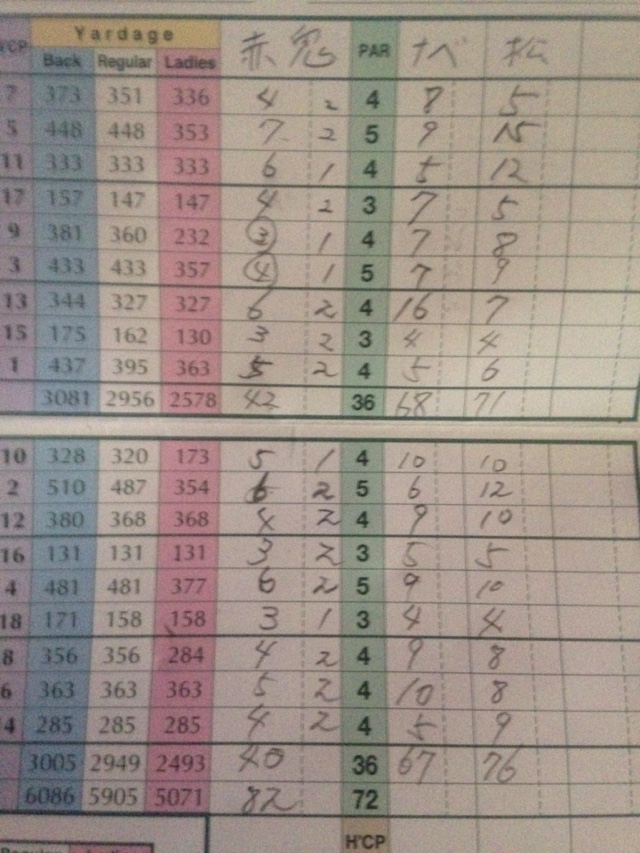 Yardage
Back Regular Ladies PAR
7 373 351 336 4 2 4 8 5
5 448 448 353 7 2 5 9 15
11 333 333 333 6 1 4 5 12
17 157 147 147 4 2 3 7 5
9 381 360 232 3 1 4 7 8
3 433 433 357 4 1 5 7 9
13 344 327 327 6 2 4 16 7
15 175 162 130 3 2 3 4 4
1 437 395 363 5 2 4 5 6
3081 2956 2578 42 36 68 71
10 328 320 173 5 1 4 10 10
2 510 487 354 6 2 5 6 12
12 380 368 368 4 2 4 9 10
16 131 131 131 3 2 3 5 5
4 481 481 377 6 2 5 9 10
18 171 158 158 3 1 3 4 4
8 356 356 284 4 2 4 9 8
6 363 363 363 5 2 4 10 8
4 285 285 285 4 2 4 5 9
3005 2949 2493 40 36 67 76
6086 5905 5071 82 72
H'CP